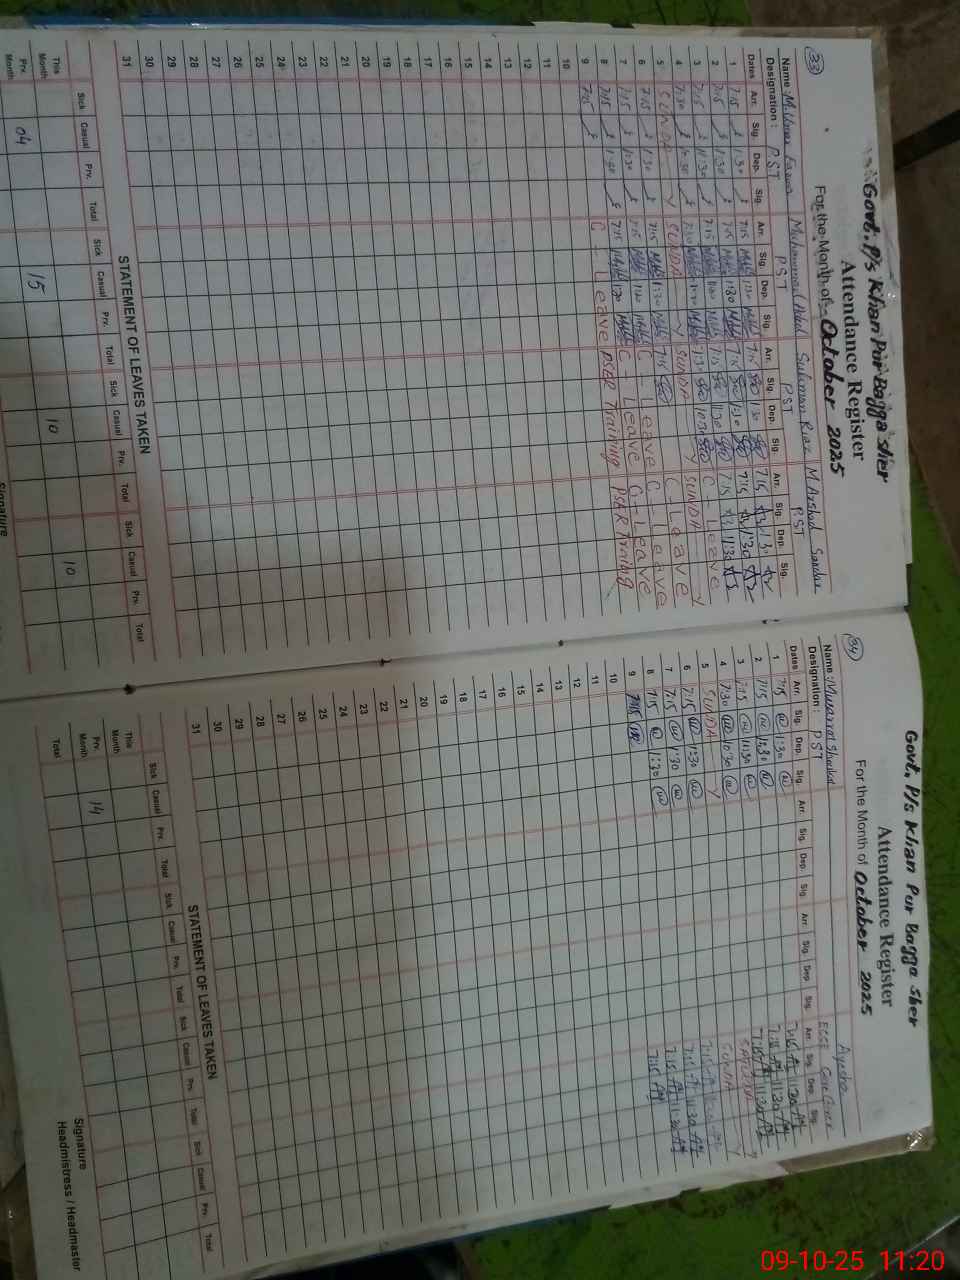 33
Govt. P/s Khan Pur Bagga Sher
Attendance Register
For the Month of October 2025
Name: M. Umar Muhammad Suliman Riaz M. Arshad Sandhu
Designation: PST PST PST PST
Dates Arr. Sig. Dep. Sig. Arr. Sig. Dep. Sig. Arr. Sig. Dep. Sig. Arr. Sig. Dep. Sig.
1 7:15 1:30 7:15 1:30 7:15 1:30 7:15 1:30
2 7:15 1:30 7:15 1:30 7:15 1:30 7:15 1:30
3 7:15 11:30 7:15 7:15 1:30 7:15 11:30
4 7:30 10:30 7:30 10:30 C-Leave
5 SUNDAY SUNDAY SUNDAY SUNDAY
6 7:15 1:30 7:15 1:30 7:15 C-Leave
7 7:15 1:30 7:15 1:30 C-Leave C-Leave
8 7:15 1:30 7:15 1:30 C-Leave C-Leave
9 7:15 C-Leave PSER Training PSER Training
10
11
12
13
14
15
16
17
18
19
20
21
22
23
24
25
26
27
28
29
30
31
STATEMENT OF LEAVES TAKEN
Sick Casual Prv. Total Sick Casual Prv. Total Sick Casual Prv. Total Sick Casual Prv. Total
This Month
Prv. Month 04 15 10 10
Signature
34
Govt. P/s Khan Pur Bagga Sher
Attendance Register
For the Month of October 2025
Name: Musarrat Shaukat Ayesha
Designation: PST ECCE Care Giver
Dates Arr. Sig. Dep. Sig. Arr. Sig. Dep. Sig. Arr. Sig. Dep. Sig. Arr. Sig. Dep. Sig.
1 7:15 1:30 7:15 11:30
2 7:15 1:30 7:15 11:30
3 7:15 11:30 7:15 11:30
4 7:30 10:30 SATURDAY
5 SUNDAY SUNDAY
6 7:15 1:30 7:15
7 7:15 1:30 7:15 11:30
8 7:15 1:30 7:15 11:30
9 7:15 7:15
10
11
12
13
14
15
16
17
18
19
20
21
22
23
24
25
26
27
28
29
30
31
STATEMENT OF LEAVES TAKEN
Sick Casual Prv. Total Sick Casual Prv. Total Sick Casual Prv. Total Sick Casual Prv. Total
This Month
Prv. Month 14
Total
Signature
Headmistress / Headmaster
09-10-25 11:20